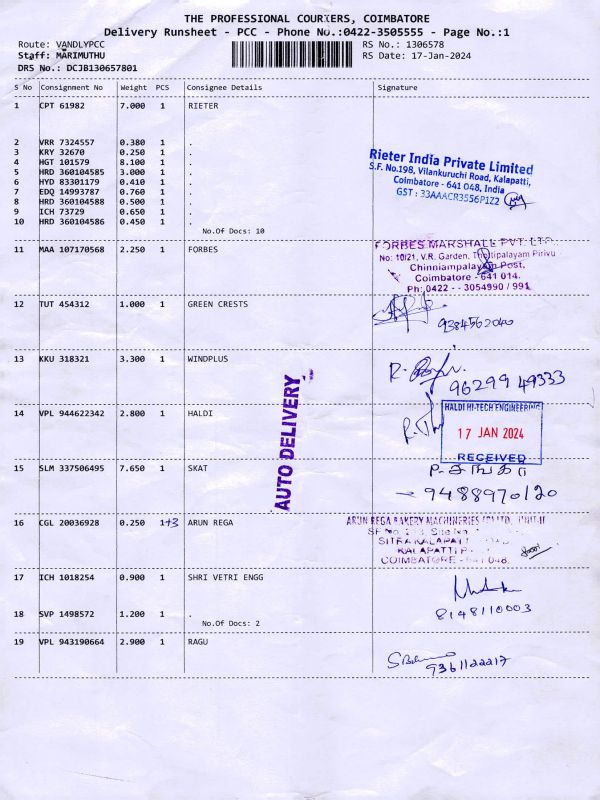 THE PROFESSIONAL COURIERS, COIMBATORE
Delivery Runsheet - PCC - Phone No.:0422-3505555 - Page No.:1
Route: VANDLYPCC RS No.: 1306578
Staff: MARIMUTHU RS Date: 17-Jan-2024
DRS No.: DCJB130657801
S No Consignment No Weight PCS Consignee Details Signature
1 CPT 61982 7.000 1 RIETER
2 VRR 7324557 0.380 1 .
3 KRY 32670 0.250 1 .
4 HGT 101579 8.100 1 .
5 HRD 360104585 3.000 1 .
6 HYD 83301179 0.410 1 .
7 EDQ 14993787 0.760 1 .
8 HRD 360104588 0.500 1 .
9 ICH 73729 0.650 1 .
10 HRD 360104586 0.450 1 .
No.Of Docs: 10
Rieter India Private Limited
S.F. No.198, Vilankuruchi Road, Kalapatti,
Coimbatore - 641 048, India
GST : 33AAACR3556P1Z2
11 MAA 107170568 2.250 1 FORBES
FORBES MARSHALL PVT. LTD.,
No: 10/21, V.R. Garden, Thottipalayam Pirivu
Chinniampalayam Post,
Coimbatore - 641 014.
Ph: 0422 - - 3054990 / 991
12 TUT 454312 1.000 1 GREEN CRESTS
9384562040
13 KKU 318321 3.300 1 WINDPLUS
96299 49333
AUTO DELIVERY
14 VPL 944622342 2.800 1 HALDI
HALDI HI-TECH ENGINEERING
17 JAN 2024
RECEIVED
15 SLM 337506495 7.650 1 SKAT
P. சங்கர்
- 9488970120
16 CGL 20036928 0.250 1+3 ARUN REGA
ARUN REGA BAKERY MACHINERIES (P) LTD., UNIT-II
SF No. Site No.
SITRA KALAPATTI ROAD
KALAPATTI P
COIMBATORE - 641 048.
17 ICH 1018254 0.900 1 SHRI VETRI ENGG
18 SVP 1498572 1.200 1 .
No.Of Docs: 2
8148110003
19 VPL 943190664 2.900 1 RAGU
9361122217